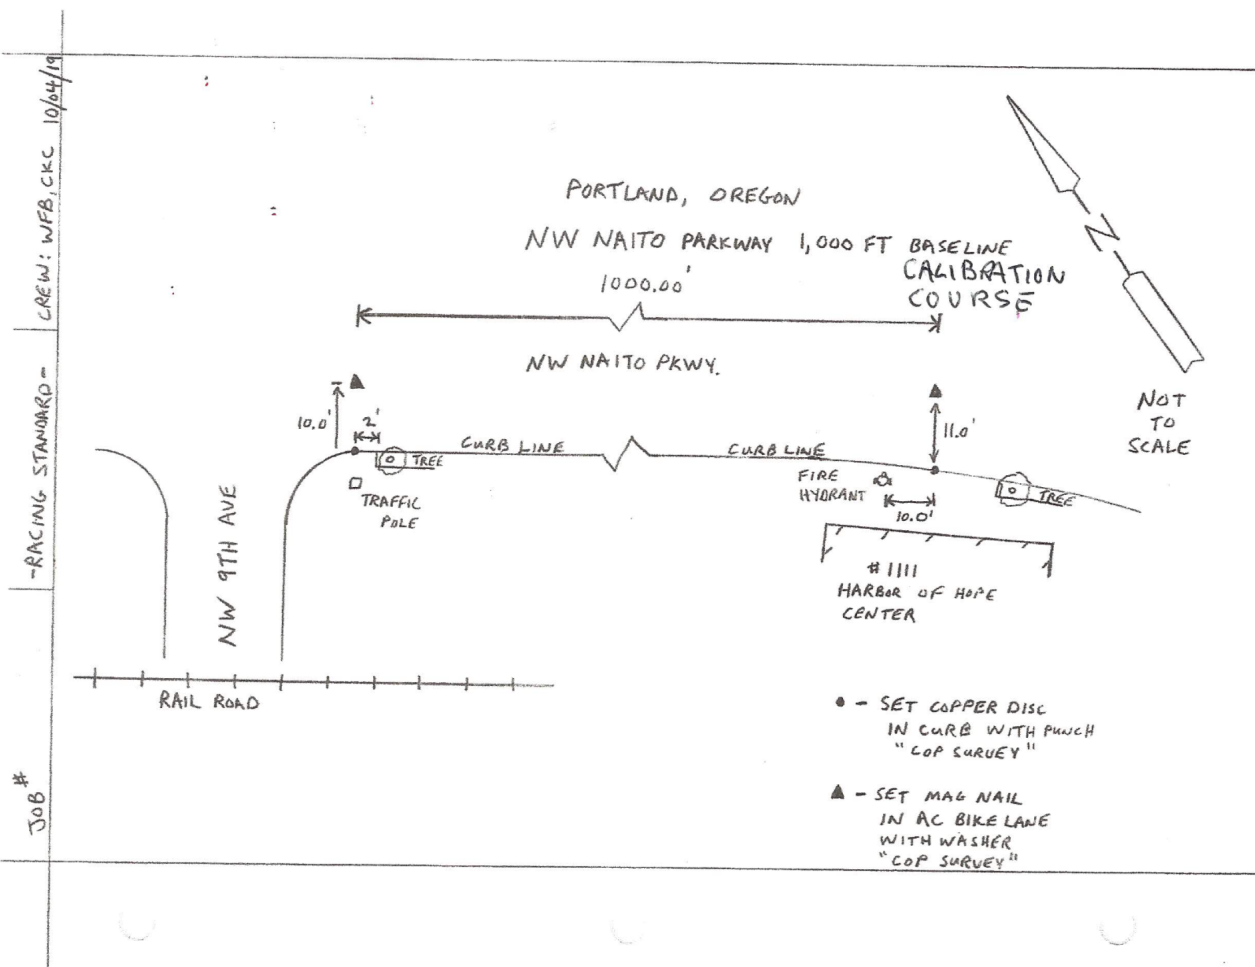 CREW: WFB, CKC 10/04/19
-RACING STANDARD-
JOB #
PORTLAND, OREGON
NW NAITO PARKWAY 1,000 FT BASELINE
CALIBRATION
COURSE
1000.00'
NW NAITO PKWY.
N
NOT
TO
SCALE
10.0'
2'
11.0'
CURB LINE
CURB LINE
TREE
TRAFFIC
POLE
FIRE
HYDRANT
10.0'
TREE
NW 9TH AVE
#1111
HARBOR OF HOPE
CENTER
RAIL ROAD
● - SET COPPER DISC
IN CURB WITH PUNCH
"COP SURVEY"
▲ - SET MAG NAIL
IN AC BIKE LANE
WITH WASHER
"COP SURVEY"